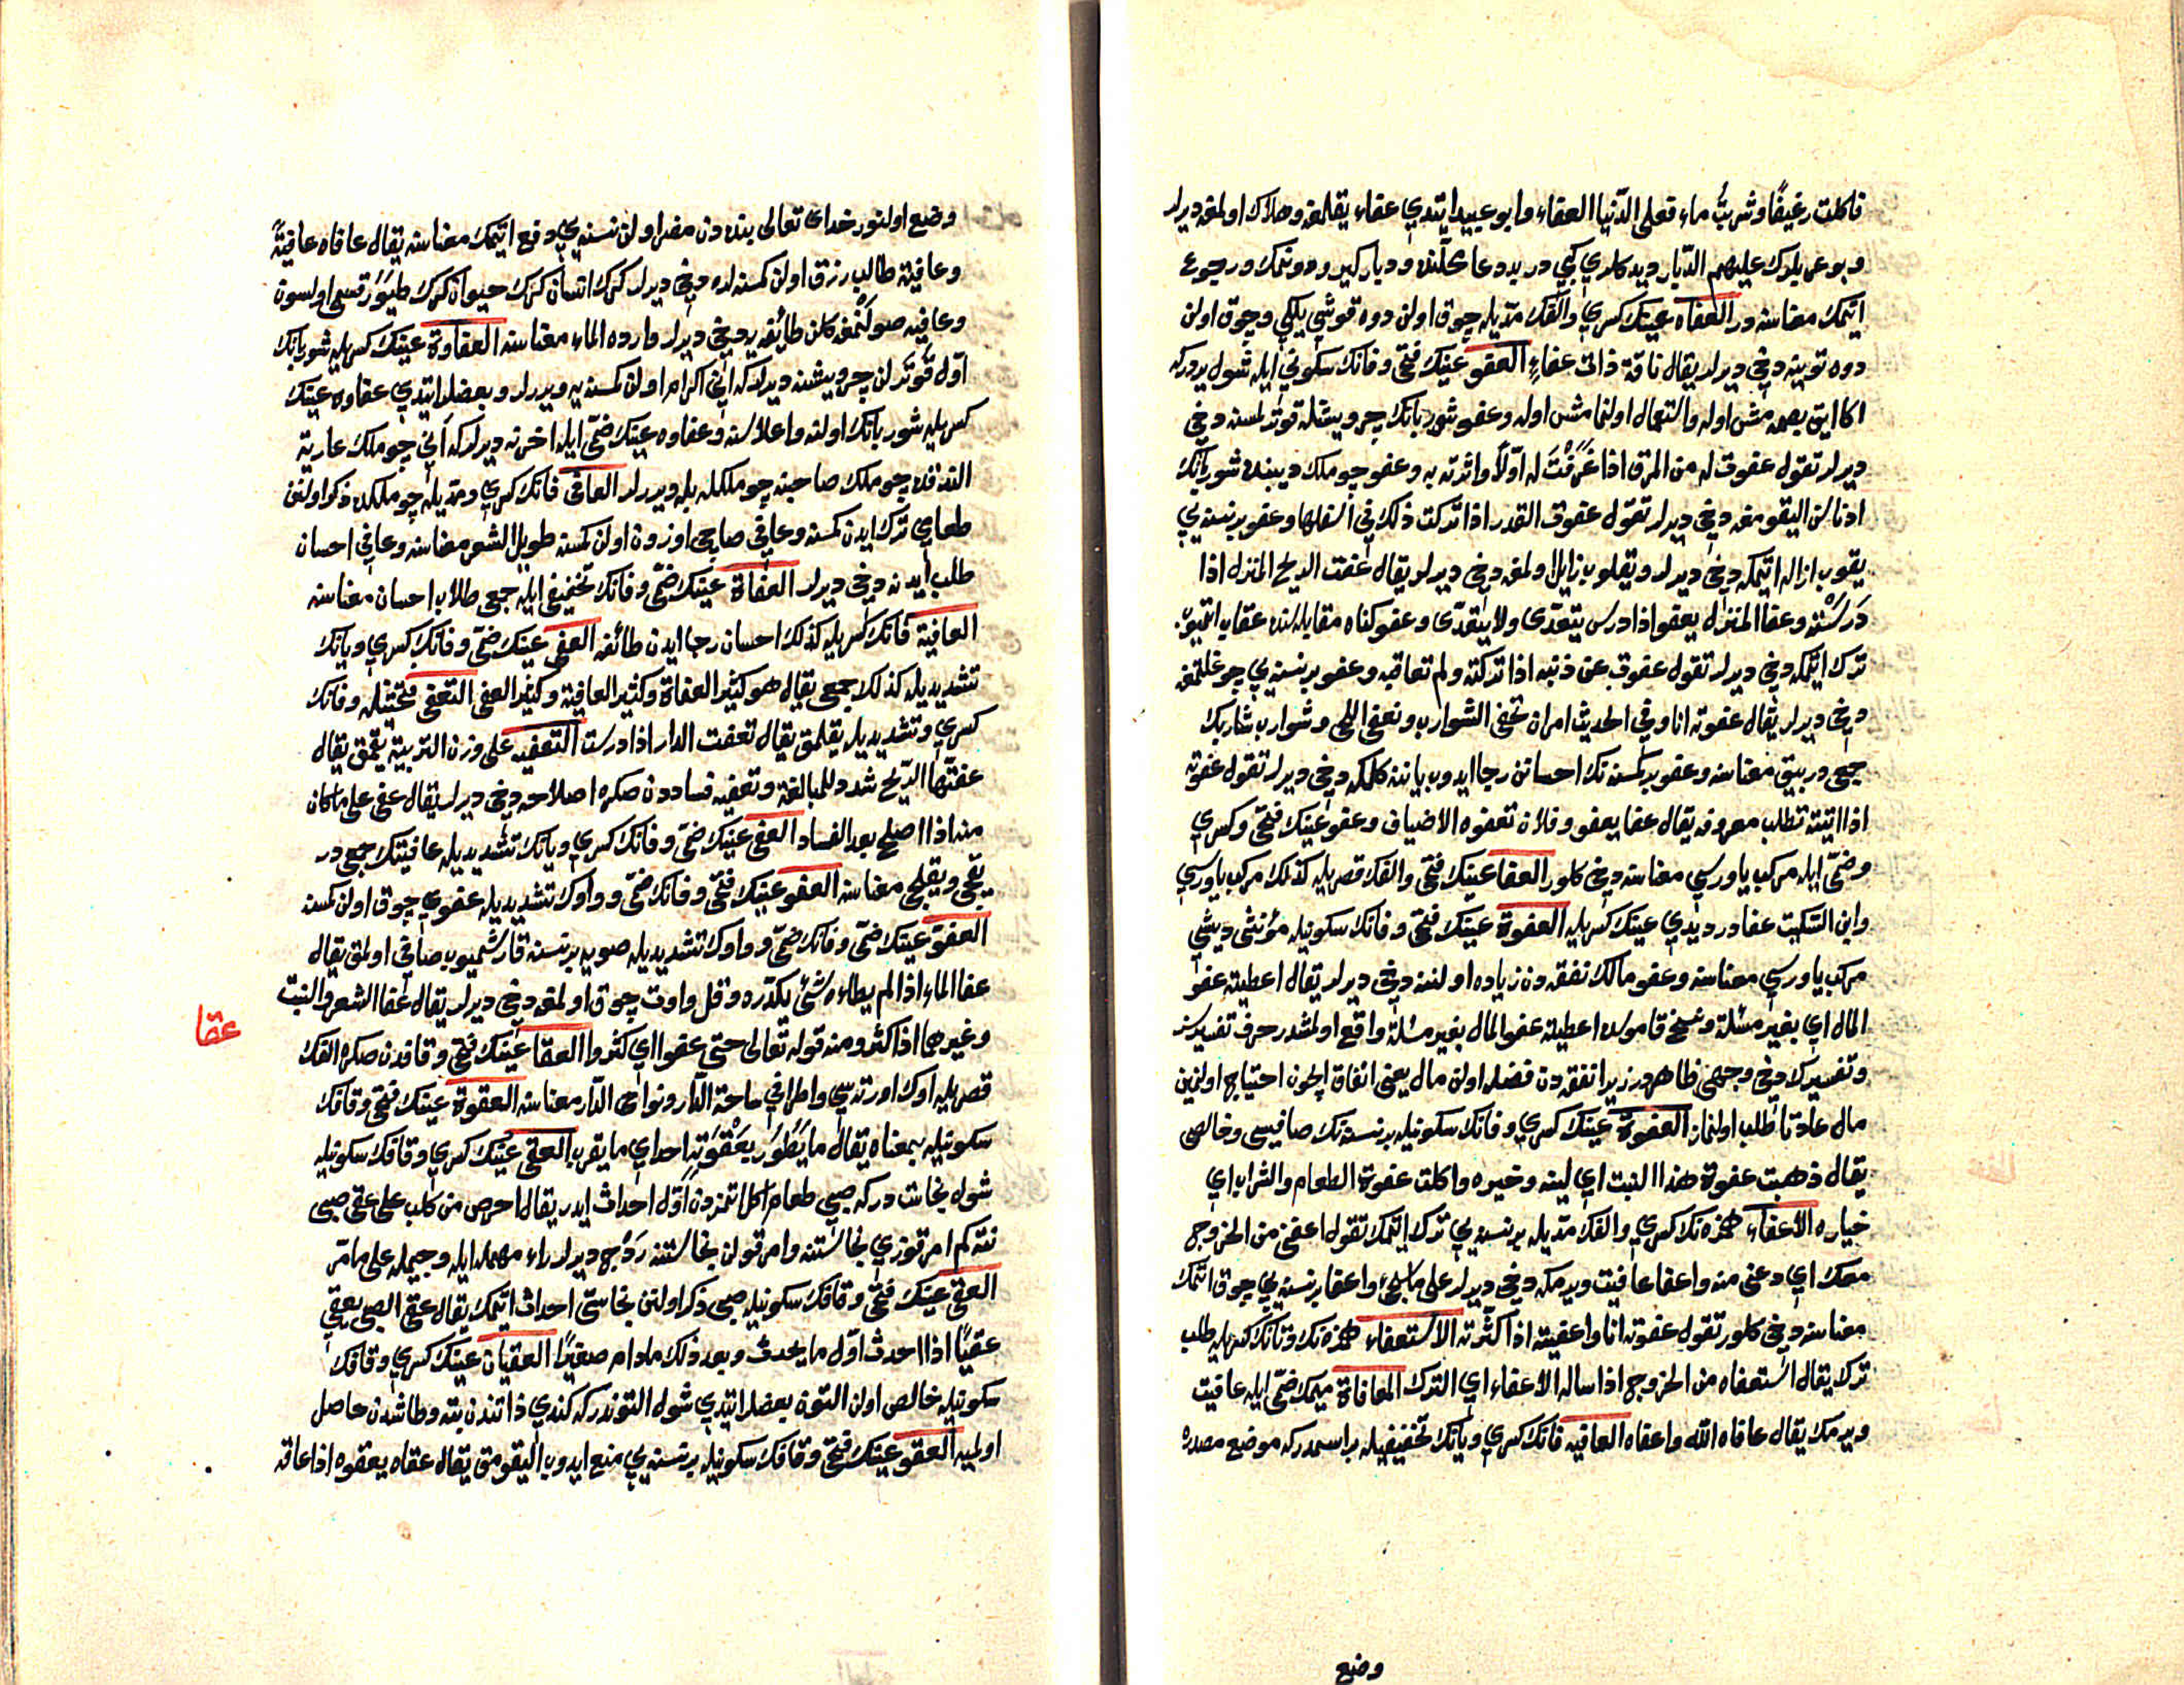 فاكلت رغيفًا وشربتُ ماء فعلى الدّنيا العفاء وابو عبيد ايتدي عفاء يقلمغه وهلاك اولمغه ديرلر
وبو عمر يلرك عليهم الدّبار ديدكلري كبي در بددعا محلّنده ودبار كيرو دونمك ورجوع
ايتمك معناسنه در العفاء عينك كسري والفك مدّيله چوق اولن دوه قوشي يلكي وچوق اولن
دوه تويينه دخي ديرلر يقال ناقة ذات عفاءٍ العفو عينك فتحي وفانك سكوني ايله شول يردركه
اكا ايق بصمه مش اوله واستعمال اولنما مش اوله وعفو شوربانك چرويشله قوتر لسنه دخي
ديرلر تقول عفوت له من المرق اذا غَرَفْتَ له اوّلاً واثرته به وعفو چوملك ديبنده شوربانك
ادناسن اليقومغه دخي ديرلر تقول عفوت القدر اذا تركت ذلك في اسفلها وعفو بر نسنه يي
يقوب ازاله اتمكه دخي ديرلر ويقلوب زايل اولمغه دخي ديرلر يقال عفت الريح المنزل اذا
دَرَسَتْه وعفا المنزل يعفو اذا درس يتعدّى ولا يتعدّى وعفو كناه مقابله سنده عقاب اتميوب
ترك ايتمكه دخي ديرلر تقول عفوت عن ذنبه اذا تركته ولم تعاقبه وعفو بر نسنه يي چوغلتمغه
دخي ديرلر يقال عفوته انا وفي الحديث امر ان تحفى الشوارب ونعفى اللحى وشوارب شاربك
جمعي در بيق معناسنه وعفو بر كسنه نك احسانن رجا ايدوب ياننه كلمكه دخي ديرلر تقول عفوته
اذا اتيته تطلب معروفه يقال عفا يعفو وفلان تعفوه الاضياف وعفو عينك فتحي وكسري
وضمّي ايله مركب ياوريسي معناسنه دخي كلور العفا عينك فتحي والفك قصريله كذلك مركب ياوريسي
وابن السّكيت عفا در ديدي عينك كسريله العفوة عينك فتحي وفانك سكونيله مؤنثي ديشي
مركب ياوريسي معناسنه وعفو مالك نفقه دن زياده اولننه دخي ديرلر يقال اعطيته عفو
المال اي بغير مسئلة ونسخ قاموسده اعطيته عفو المال بغير مسئلة واقع اولمشدر حرف تفسيرسز
وتفسيرك دخي وجهي ظاهردر زيرا نفقه دن فضله اولن مال يعني انفاق ايچون احتياج اولنين
مال عادتا طلب اولنماز العفوة عينك كسري وفانك سكونيله بر نسنه نك صافيسي وخالصي
يقال ذهبت عفوة هذا النبت اي لينه وخيره واكلت عفوة الطعام والشراب اي
خياره الاعفاء همزه نك كسري والفك مدّيله بر نسنه يي ترك ايتمك تقول اعفني من الخروج
معك اي دعني منه واعفا عافيت ويرمكه دخي ديرلر على ما يجئ واعفا بر نسنه يي چوق اتمك
معناسنه دخي كلور تقول عفوته انا واعفيته اذا كثّرته الاستعفاء همزه نك وتانك كسريله طلب
ترك يقال استعفاه من الخروج اذا ساله الاعفاء اي الترك المعافاة ميمك ضمّي ايله عافيت
ويرمك يقال عافاه الله واعفاه العافيه فانك كسري ويانك تخفيفيله بر اسمدركه موضع مصدره
وضع
وضع اولنور خداي تعالى بنده دن مضر اولن نسنه يي دفع اتمك معناسنه يقال عافاه عافيةً
وعافية طالب رزق اولن كمسنه لره دخي ديرلر كرك انسان كرك حيوان كرك طيور قسمي اولسون
وعافيه صو لنمغه كلن طائفه يه دخي ديرلر وارده الماء معناسنه العفاوة عينك كسريله شوربانك
اوّل قوترلن چرويشنه ديرلركه انى اكرام اولن كمسنه يه ويررلر وبعضلر ايتدي عفاوه عينك
كسريله شوربانك اولنه واعلاسنه وعفاوه عينك ضمّي ايله اخرنه ديرلركه انى چوملك عاريتة
الندقده چوملك صاحبنه چوملكله بله ويررلر العافى فانك كسري ومدّيله چوملكده ذكر اولنن
طعامي ترك ايدن كمسنه وعافي صاچي اوزون اولن كمسنه طويل الشعر معناسنه وعافي احسان
طلب ايدنه دخي ديرلر العفاة عينك ضمّي وفانك تخفيفي ايله جمعي طلاب احسان معناسنه
العافية فانك كسريله كذلك احسان رجا ايدن طائفه العفى عينك ضمّي وفانك كسري ويانك
تشديديله كذلك جمعي يقال هو كثير العفاة وكثير العافية وكثير العفى التعفى فتحتيله وفانك
كسري وتشديديله يقلمق يقال تعفت الدار اذا درست التعفيه على وزن التربية يقمق يقال
عفتها الريح شدد للمبالغة وتعفيه فساددن صكره اصلاحه دخي ديرلر يقال عفى على ما كان
منه اذا اصلح بعد الفساد العفى عينك ضمّي وفانك كسري ويانك تشديديله عافينك جمعي در
يقي ويقلجي معناسنه العفو عينك فتحي وفانك ضمّي وواوك تشديديله عفوي چوق اولن كمسنه
العفو عينك ضمّي وفانك ضمّي وواوك تشديديله صويه بر نسنه قارشميوب صافي اولمق يقال
عفا الماء اذا لم يطاءه شئ يكدّره وقل واوت چوق اولمغه دخي ديرلر يقال عفا الشعر والنبت
وغيرهما اذا كثر ومنه قوله تعالى حتى عفوا اي كثروا العقا عينك فتحي وقافدن صكره الفك
عقا
قصريله اوك اورته سي واطرافي ساحة الدّار ونواحى الدّار معناسنه العقوة عينك فتحي وقافك
سكونيله بمعناه يقال ما يَطُورُ بعَقْوَتِه احد اي ما يقرب العقى عينك كسري وقافك سكونيله
شول نجاست دركه صبي طعام اكل اتمزدن اوّل احداث ايدر يقال احرص من كلب على عقى صبي
نته كم امر قوزي نجاستنه وامر قولن نجاستنه رَدَج ديرلر راء مهمله ايله وجيمله على ما مرّ
العقى عينك فتحي وقافك سكونيله صبي ذكر اولنن نجاستي احداث اتمك يقال عقى الصبي يعقى
عقيًا اذا احدث اوّل ما يحدث وبعد ذلك مادام صغيرًا العقيان عينك كسري وقافك
سكونيله خالص اولن التون بعضلر ايتدي شول التوندركه كندي ذاتندن بته وطاشدن حاصل
اولميه العقو عينك فتحي وقافك سكونيله بر نسنه يي منع ايدوب اليقومق يقال عقاه يعقوه اذا عاقه